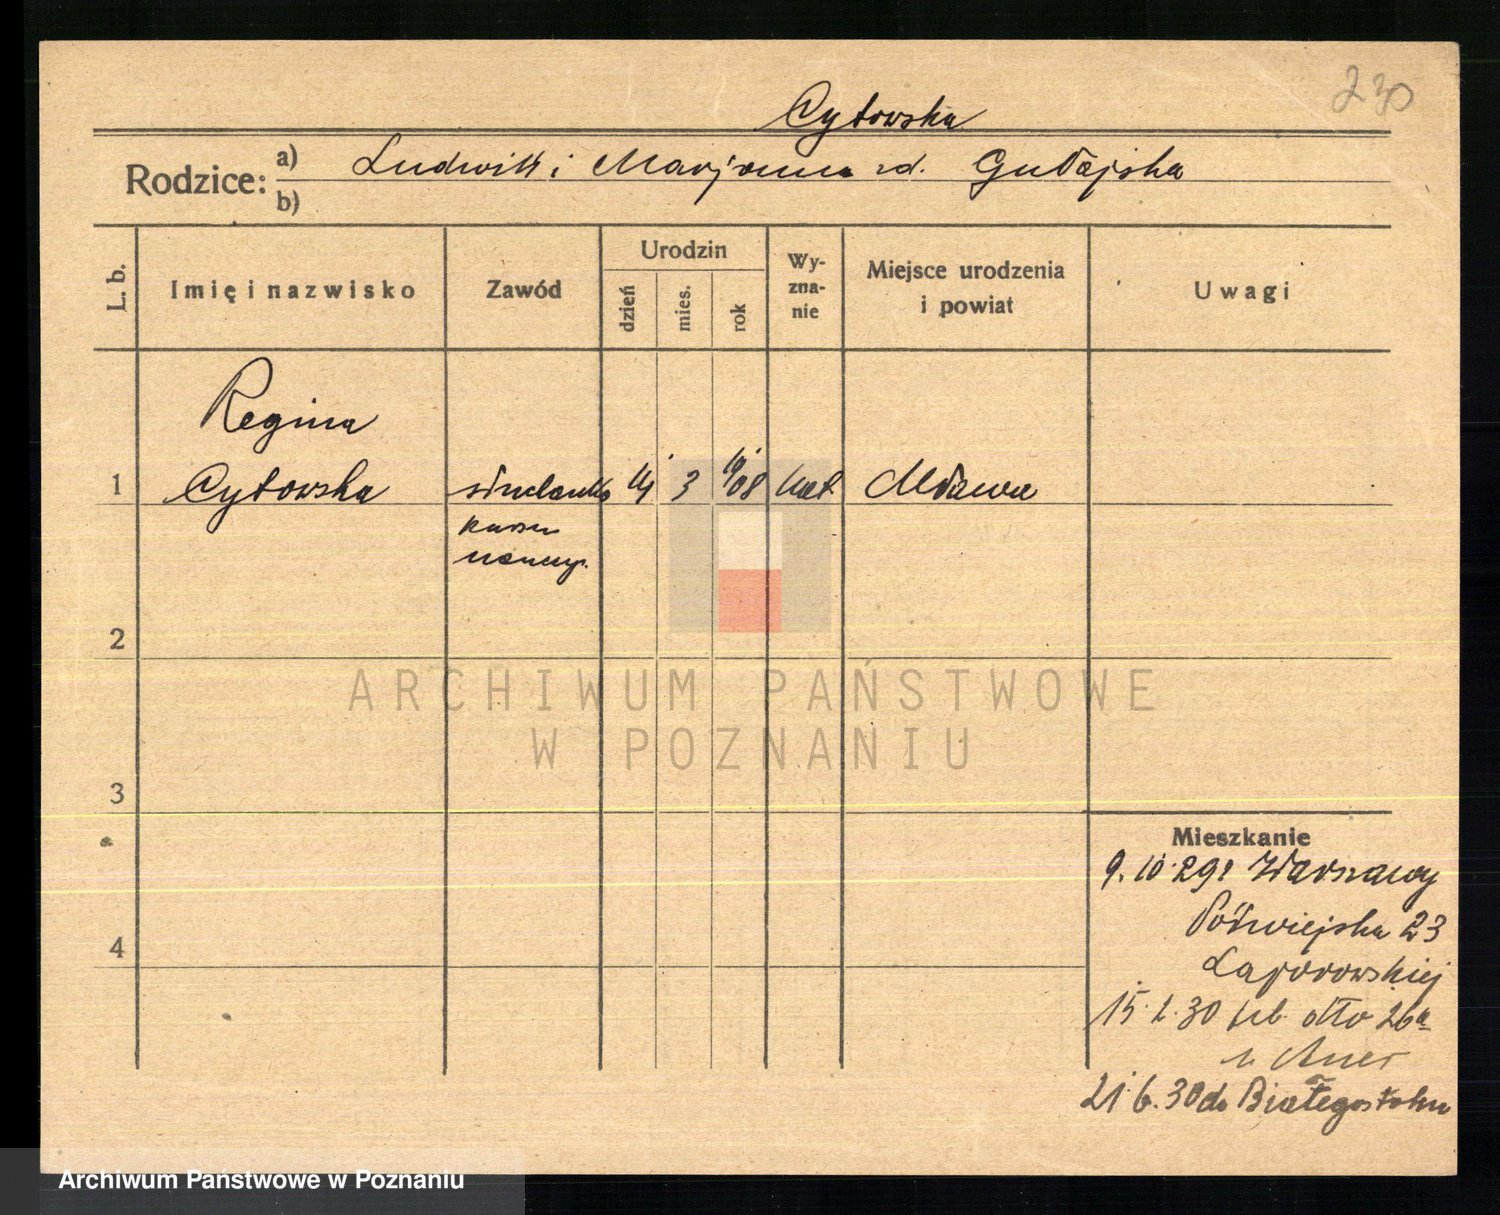 230
Cytowska
Rodzice: a) Ludwik i Marjanna zd. Gułajska
b)
L. b.
Imię i nazwisko
Zawód
Urodzin
dzień
mies.
rok
Wy-
zna-
nie
Miejsce urodzenia
i powiat
Uwagi
Regina
1 Cytowska 3 1908 kat. Mława
kursu
2
ARCHIWUM PAŃSTWOWE
W POZNANIU
3
Mieszkanie
9.10.29 z Warszawy
Półwiejska 23
4
15.2.30 26a
21.6.30 do Białegostoku
Archiwum Państwowe w Poznaniu